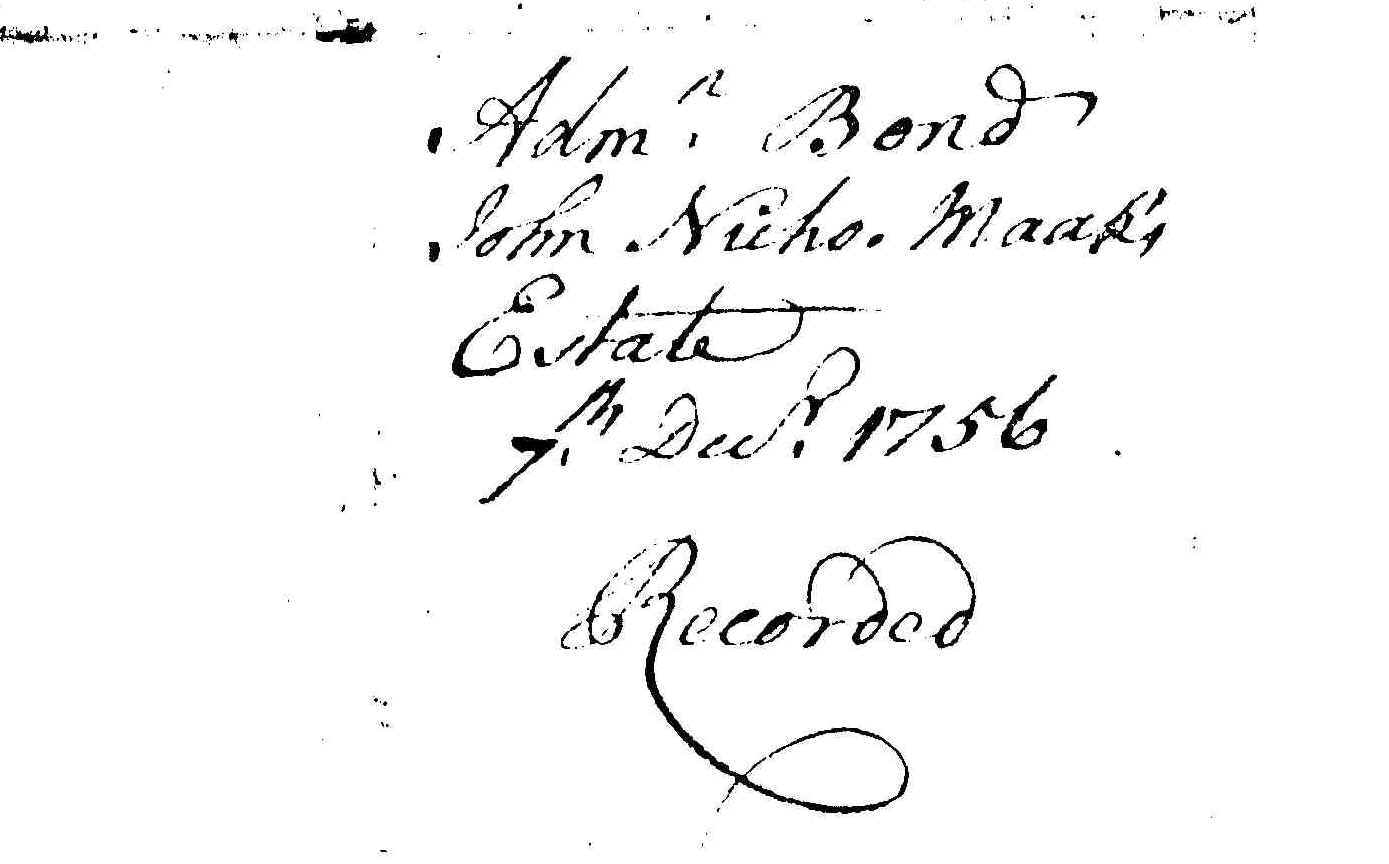 Admr. Bond
John Nicho. Maak's
Estate
7th. Decr. 1756
Recorded